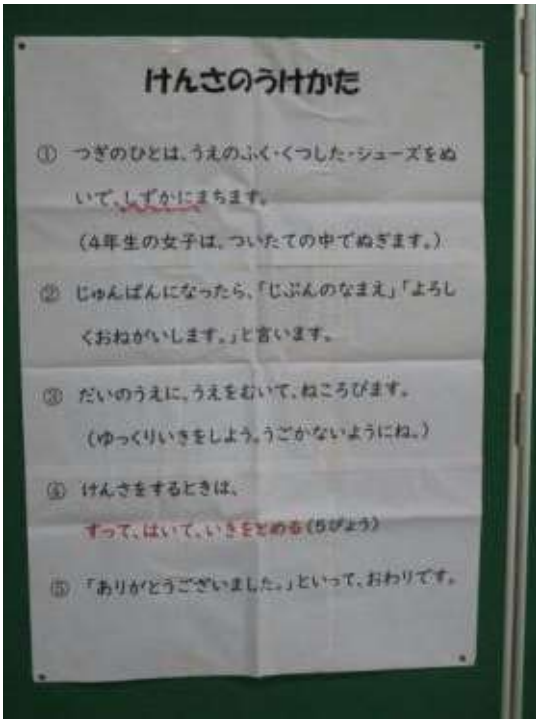 けんさのうけかた
① つぎのひとは、うえのふく・くつした・シューズをぬ
いで、しずかにまちます。
(4年生の女子は、ついたての中でぬぎます。)
② じゅんばんになったら、「じぶんのなまえ」「よろし
くおねがいします。」と言います。
③ だいのうえに、うえをむいて、ねころびます。
(ゆっくりいきをしよう。うごかないようにね。)
④ けんさをするときは、
すって、はいて、いきをとめる(5びょう)
⑤ 「ありがとうございました。」といって、おわりです。